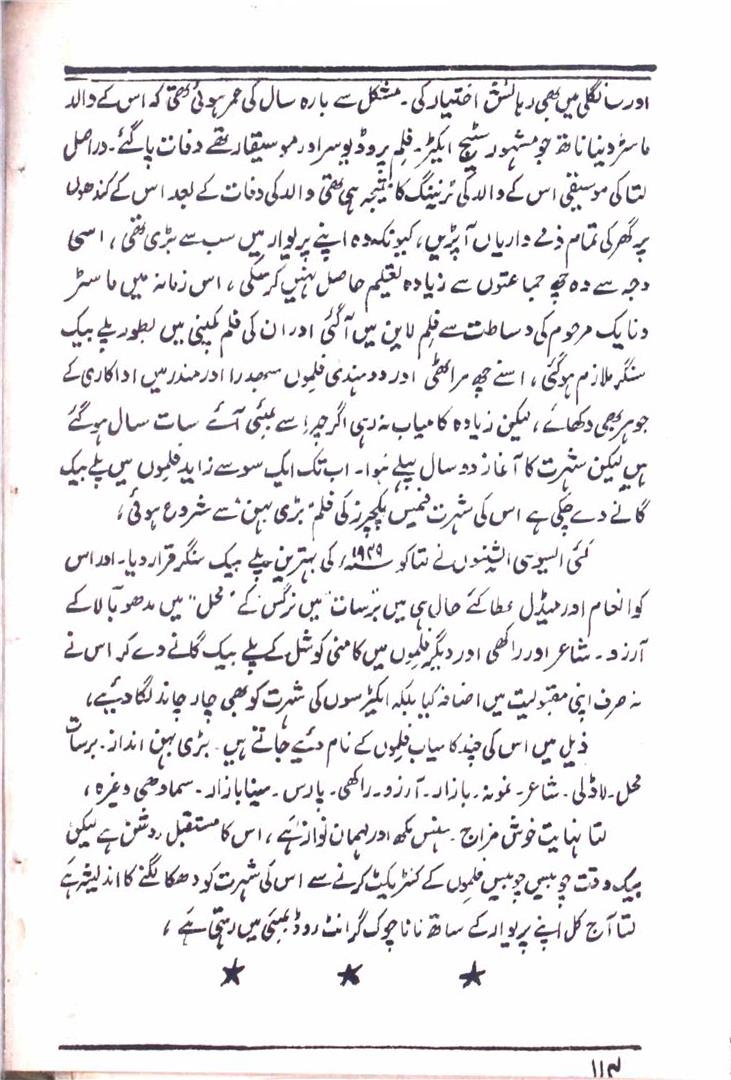 اور سانگلی میں بھی رہائش اختیار کی۔ مشکل سے بارہ سال کی عمر ہوئی تھی کہ اس کے والد
ماسٹر دینا ناتھ جو مشہور سٹیج ایکٹر۔ فلم پروڈیوسر اور موسیقار تھے وفات پا گئے۔ دراصل
لتا کی موسیقی اس کے والد کی ٹریننگ کا نتیجہ ہی تھی والد کی وفات کے بعد اس کے کندھوں
پر گھر کی تمام ذمے داریاں آ پڑیں، کیونکہ وہ اپنے پریوار میں سب سے بڑی تھی، اسی
وجہ سے وہ چھ جماعتوں سے زیادہ تعلیم حاصل نہیں کر سکی، اس زمانہ میں ماسٹر
ونایک مرحوم کی وساطت سے فلم لاین میں آ گئی اور ان کی فلم کمپنی میں بطور پلے بیک
سنگر ملازم ہو گئی، اسنے چھ مراٹھی اور دو ہندی فلموں سبھدرا اور مندر میں اداکاری کے
جوہر بھی دکھائے، لیکن زیادہ کامیاب نہ رہی اگرچہ اسے بمبئی آئے سات سال ہو گئے
ہیں لیکن شہرت کا آغاز دو سال پہلے ہوا۔ اب تک ایک سو سے زاید فلموں میں پلے بیک
گانے دے چکی ہے اس کی شہرت فیمس پکچرز کی فلم "بڑی بہن" سے شروع ہوئی،
کئی ایسوسی ایشنوں نے لتا کو ۱۹۴۹ء کی بہترین پلے بیک سنگر قرار دیا۔ اور اس
کو انعام اور میڈل عطا کئے حال ہی میں "برسات" میں نرگس کے "محل" میں مدھو بالا کے
آرزو۔ شاعر اور راکھی اور دیگر فلموں میں کامنی کوشل کے پلے بیک گانے دے کر اس نے
نہ صرف اپنی مقبولیت میں اضافہ کیا بلکہ ایکٹرسوں کی شہرت کو بھی چار چاند لگا دیئے،
ذیل میں اس کی چند کامیاب فلموں کے نام دئیے جاتے ہیں۔ بڑی بہن انداز۔ برسات
محل۔ لاڈلی۔ شاعر۔ نمونہ۔ بازار۔ آرزو۔ راکھی۔ پارس۔ مینا بازار۔ سمادھی وغیرہ،
لتا نہایت خوش مزاج۔ ہنس مکھ اور مہمان نواز ہے، اس کا مستقبل روشن ہے لیکن
بیک وقت چوبیس چوبیس فلموں کے کنٹریکٹ کرنے سے اس کی شہرت کو دھکا لگنے کا اندیشہ ہے
لتا آج کل اپنے پریوار کے ساتھ نانا چوک گرانٹ روڈ بمبئی میں رہتی ہے،
۱۱۴